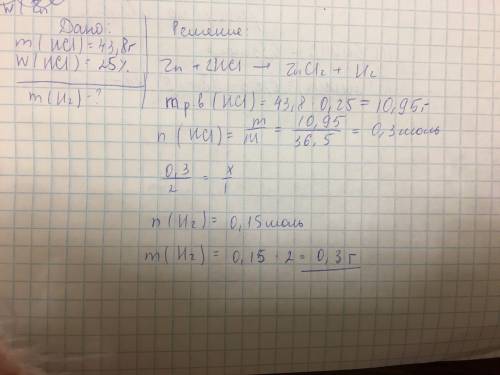 Дано:
m(HCl) = 43,8г
W(HCl) = 25%
m(H₂) - ?
Решение:
Zn + 2HCl → ZnCl₂ + H₂
m р.в (HCl) = 43,8 · 0,25 = 10,95г
n(HCl) = m/M = 10,95/36,5 = 0,3 моль
0,3/2 = x/1
n(H₂) = 0,15 моль
m(H₂) = 0,15 · 2 = 0,3 г